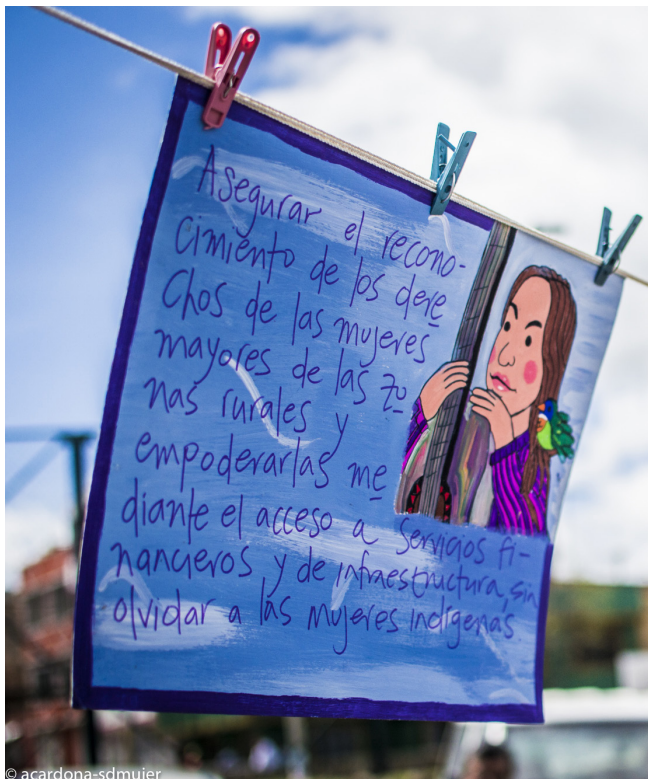 Asegurar el recono-
cimiento de los dere
chos de las mujeres
mayores de las zo
nas rurales y
empoderarlas me
diante el acceso a servicios fi-
nancieros y de infraestructura, sin
olvidar a las mujeres indígenas.
© acardona-sdmujer